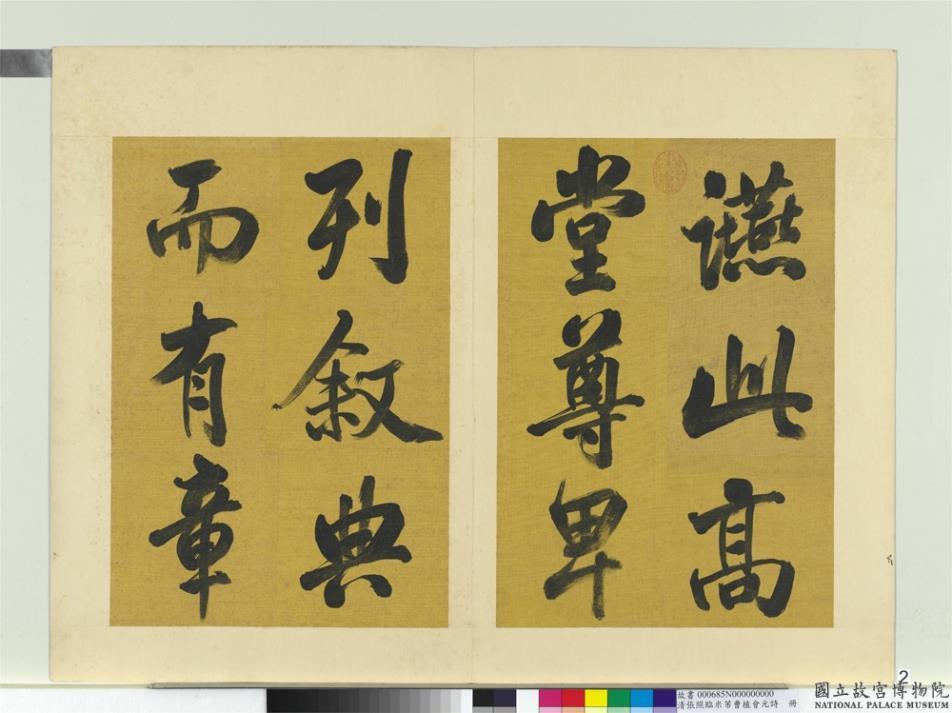 讌此高
堂尊卑
列敘典
而有章
2
故書 000685N000000000
清張照臨米芾曹植會元詩 冊
國立故宮博物院
NATIONAL PALACE MUSEUM